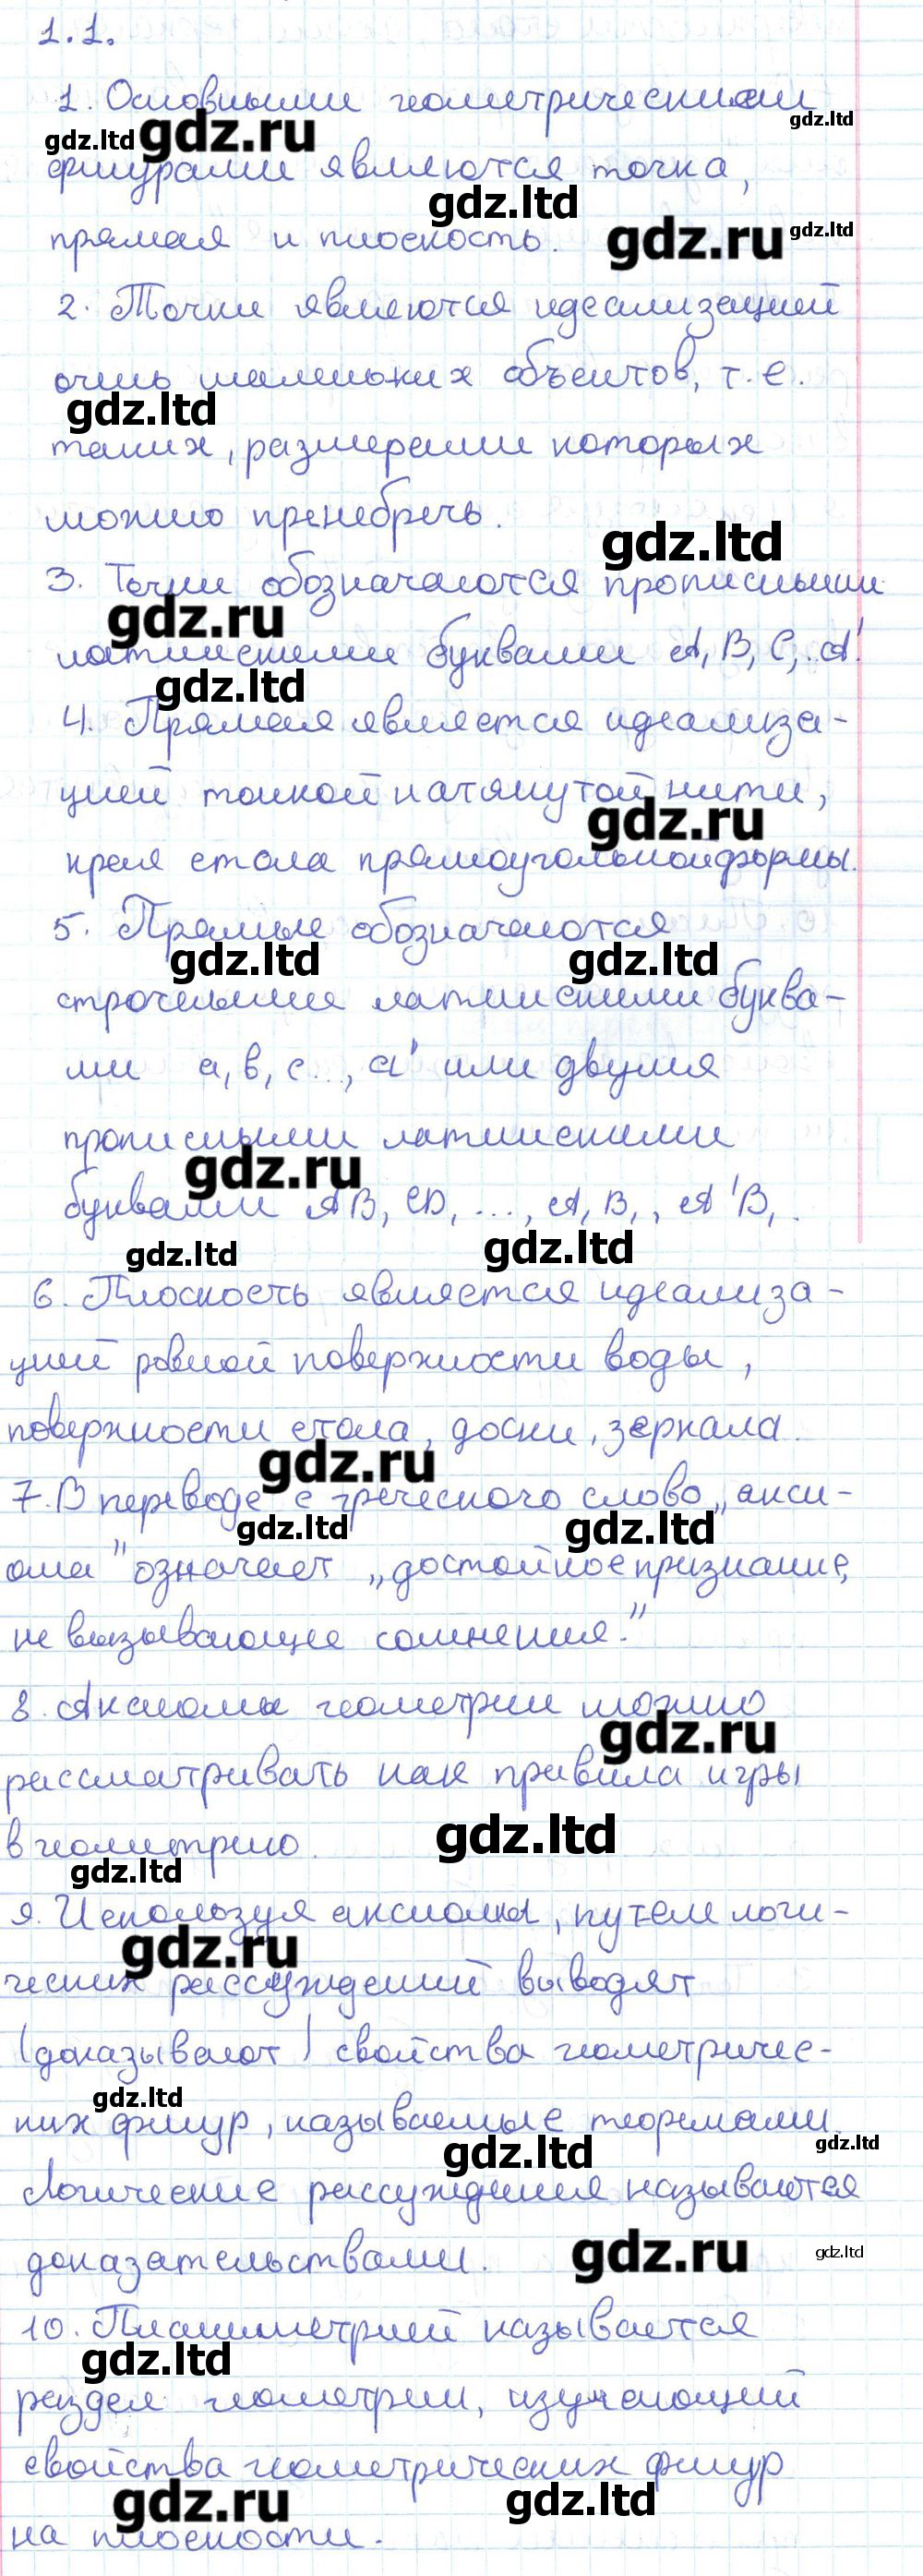 1.1.
1. Основными геометрическими
gdz.ltd gdz.ru gdz.ltd
фигурами являются точка,
gdz.ltd
прямая и плоскость. gdz.ru gdz.ltd
2. Точки являются идеализацией
очень маленьких объектов, т.е.
gdz.ltd
таких, размерами которых
можно пренебречь.
gdz.ltd
3. Точки обозначаются прописными
gdz.ru
латинскими буквами A, B, C, ..A'.
gdz.ltd
4. Прямая является идеализа-
цией тонкой натянутой нити,
gdz.ru
края стола прямоугольной формы.
5. Прямые обозначаются
gdz.ltd gdz.ltd
строчными латинскими буква-
ми a, b, c ..., a' или двумя
прописными латинскими
gdz.ru
буквами AB, CD, ..., A, B, , A'B, .
gdz.ltd gdz.ltd
6. Плоскость является идеализа-
цией ровной поверхности воды,
поверхности стола, доски, зеркала.
gdz.ru
7. В переводе с греческого слово „акси-
gdz.ltd gdz.ltd
ома" означает „достойное признание,
не вызывающее сомнения."
8. Аксиомы геометрии можно
gdz.ru
рассматривать как правила игры
в геометрию.
gdz.ltd
gdz.ltd
9. Используя аксиомы, путем логи-
gdz.ru
ческих рассуждений выводят
(доказывают) свойства геометриче-
gdz.ltd
ких фигур, называемые теоремами.
gdz.ltd gdz.ltd
Логические рассуждения называются
доказательствами. gdz.ru gdz.ltd
10. Планиметрией называется
gdz.ltd
раздел геометрии, изучающий
свойства геометрических фигур
gdz.ru gdz.ltd
на плоскости.